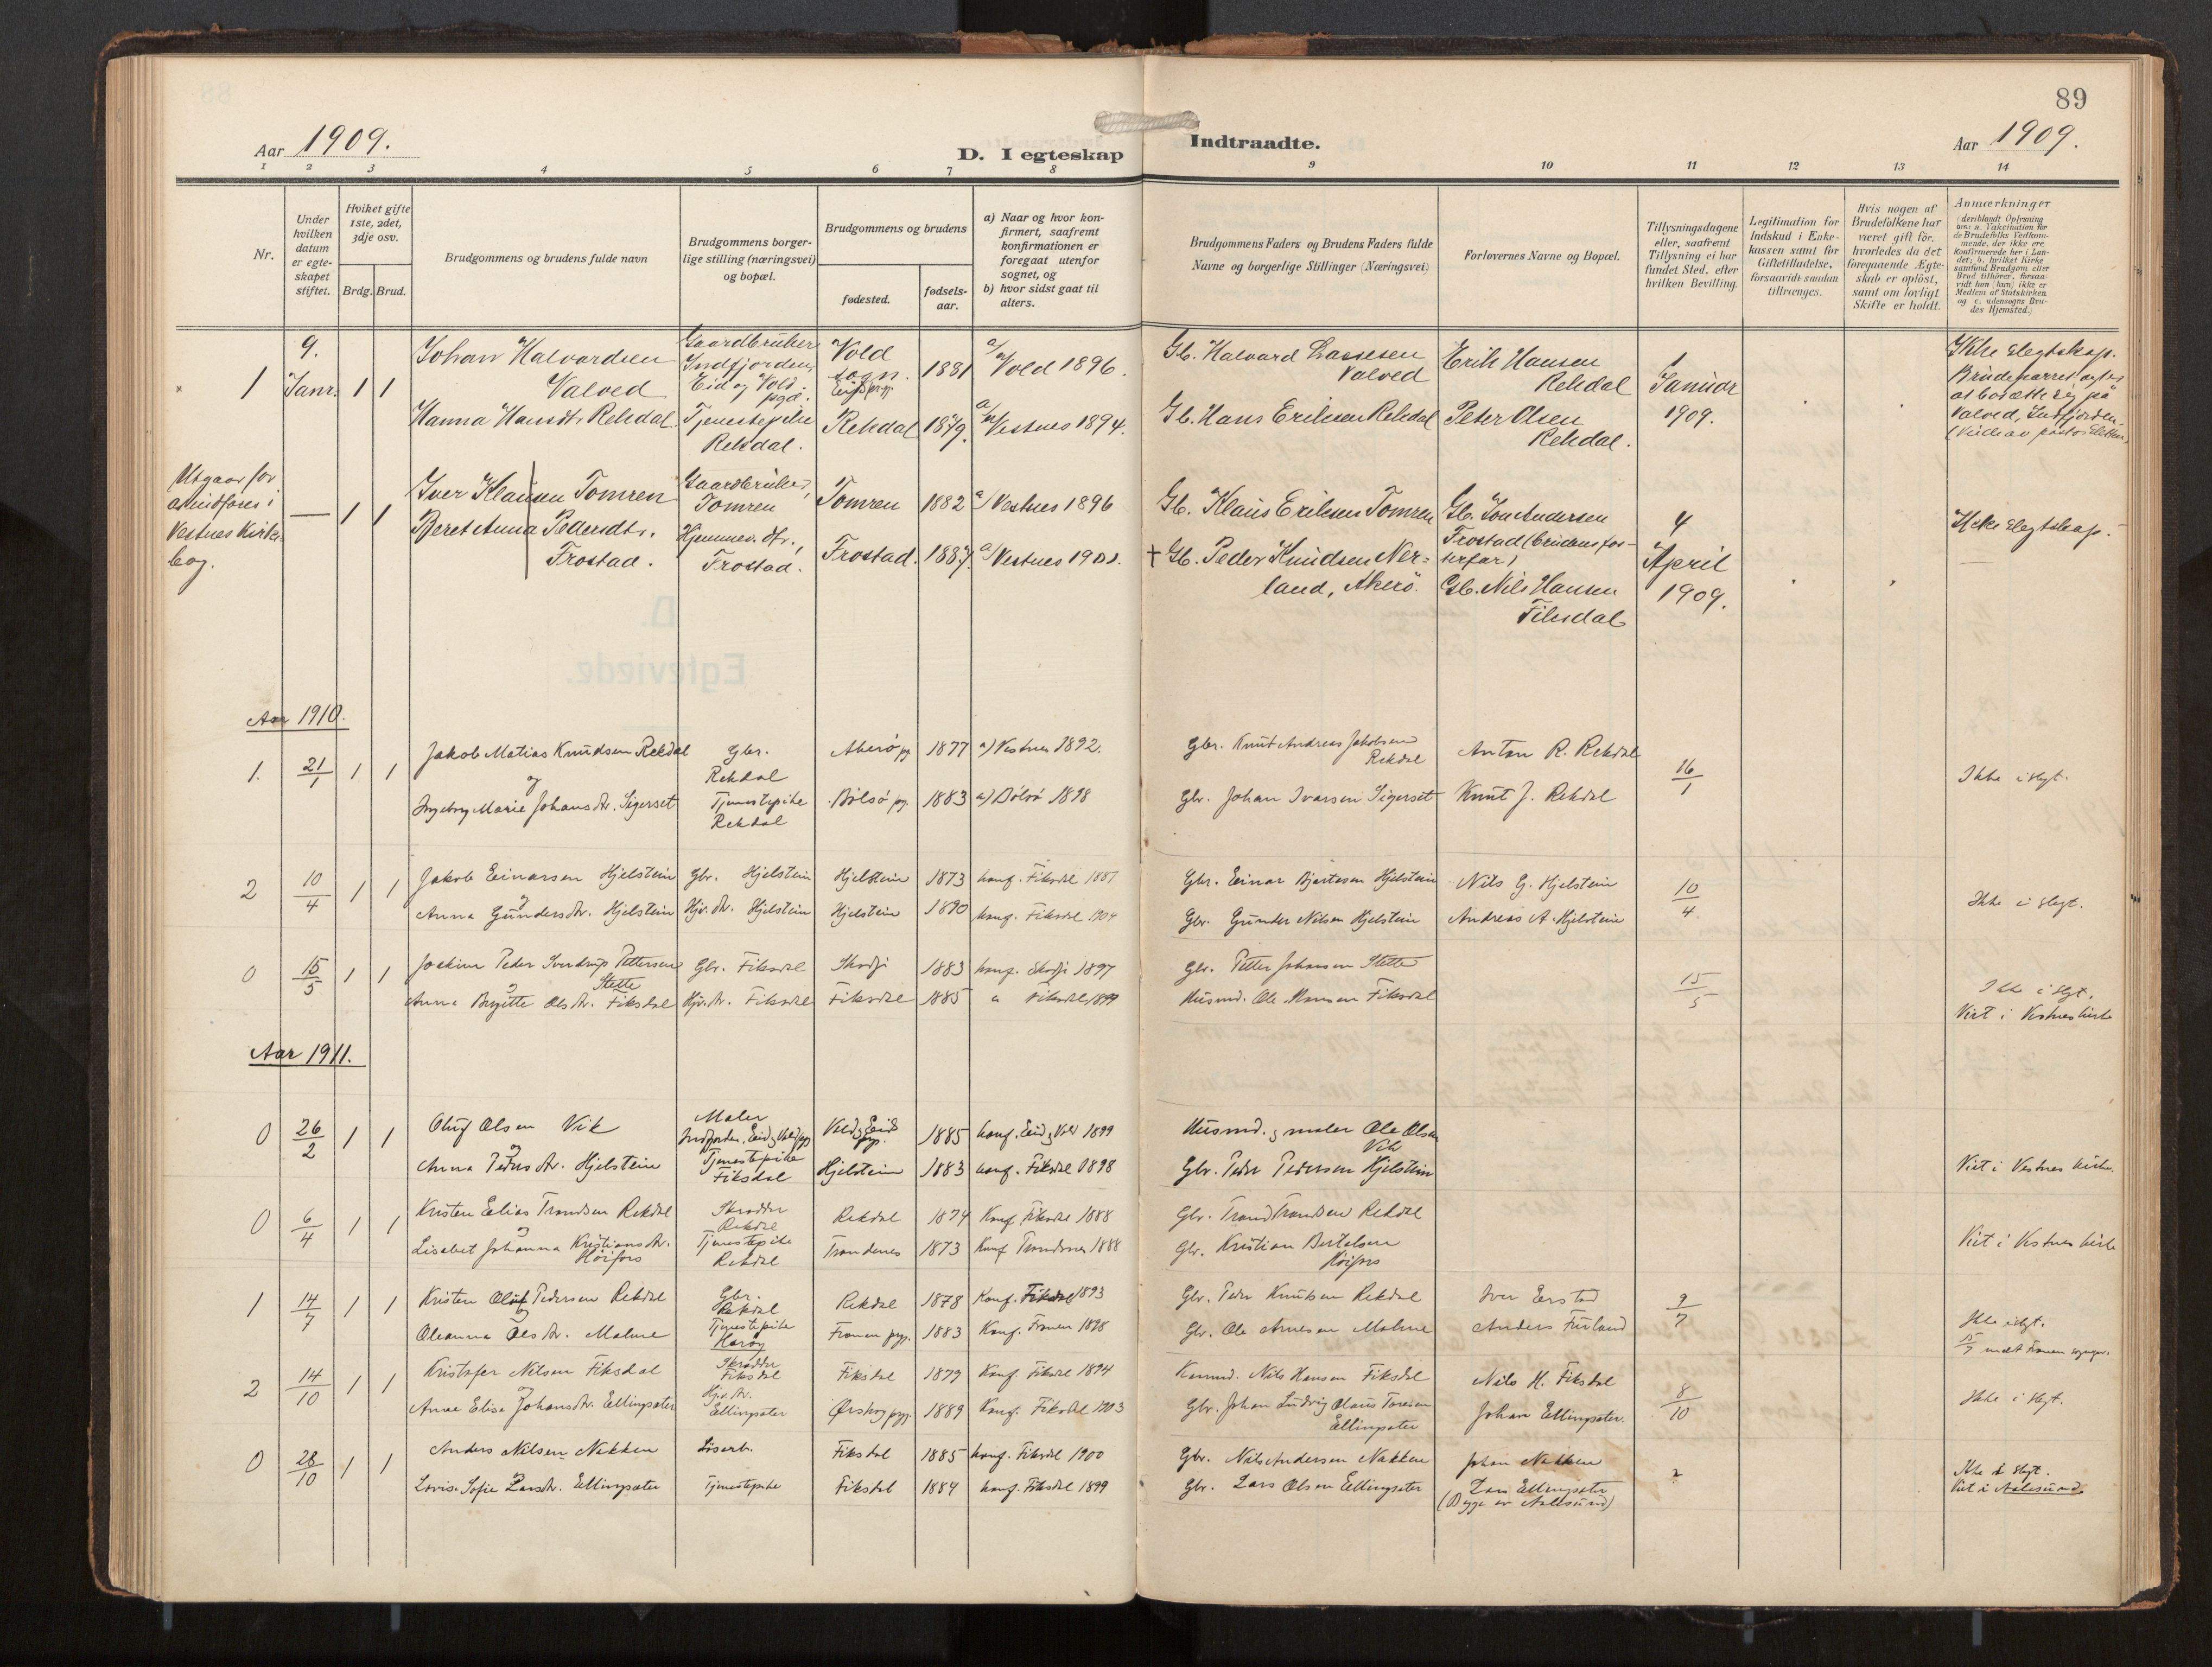 89
Aar 1909.
D. I egteskap Indtraadte.
Aar 1909.
1 2 3 4 5 6 7 8 9 10 11 12 13 14
Nr.
Under hvilken datum er egteskapet stiftet.
Hviket gifte 1ste, 2det, 3dje osv.
Brdg. Brud.
Brudgommens og brudens fulde navn
Brudgommens borgerlige stilling (næringsvei) og bopæl.
Brudgommens og brudens
fødested.
fødselsaar.
a) Naar og hvor konfirmert, saafremt konfirmationen er foregaat utenfor sognet, og
b) hvor sidst gaat til alters.
Brudgommens Faders og Brudens Faders fulde Navne og borgerlige Stillinger (Næringsvei)
Forlovernes Navne og Bopæl.
Tillysningsdagene eller, saafremt Tillysning ei har fundet Sted, efter hvilken Bevilling.
Legitimation for Indskud i Enkekassen samt for Giftetilladelse, forsaavidt saadan tiltrænges.
Hvis nogen af Brudefolkene har været gift før, hvorledes da det foregaaende Ægteskab er opløst, samt om lovligt Skifte er holdt.
Anmærkninger
1 9. Janr. 1 1
Johan Halvardsen Valved
Gaardbruker Indfjorden, Eid og Vold pgd.
Vold sogn.
1881
a/ Vold 1896.
Gb. Halvard Lassesen Valved
Erik Hansen Rekdal
1 Januar 1909.
Ikke slegtskap.
Hanna Hansdtr Rekdal.
Tjenestepike Rekdal.
Rekdal
1879.
a/ Vestnes 1894.
Gb. Hans Eriksen Rekdal
Peter Olsen Rekdal.
Utgaar for at indføres i Vestnes Kirkebog.
— 1 1
Iver Klausen Tomren
Gaardbruker, Tomren
Tomren
1882
a/ Vestnes 1896
Gb. Klaus Eriksen Tomren
Gb. Jon Andersen Frostad (brudens fosterfar)
4 April 1909.
Ikke slegtskap.
Beret Anna Pedersdtr. Frostad.
Hjemmev. dtr., Frostad.
Frostad.
1887.
a/ Vestnes
† Gb. Peder Knudsen Nerland, Akerö.
Gb. Nils Hansen Fiksdal
Aar 1910.
1. 21/1 1 1
Jakob Matias Knudsen Rekdal
og
Gbr. Rekdal
Akerö pg
1877
a) Vestnes 1892.
Gbr. Knut Andreas Jakobsen Rekdal
Anton R. Rekdal
16/1
Ikke i slegt.
Ingeborg Marie Johansdtr. Sigerset
Tjenestepike Rekdal
Bolsö pg.
1883
a) Bolsö 1898
Gbr. Johan Ivarsen Sigerset
Knut J. Rekdal
2 10/4 1 1
Jakob Einarsen Hjelstein
og
Gbr. Hjelstein
Hjelstein
1873
konf. Fiksdal 1887
Gbr. Einar Bjertesen Hjelstein
Nils G. Hjelstein
10/4
Ikke i slegt.
Anna Gundersdtr. Hjelstein
Hjv. dtr. Hjelstein
Hjelstein
1890
konf. Fiksdal 1904
Gbr. Gunder Nilsen Hjelstein
Andreas A. Hjelstein
0 15/5 1 1
Joakim Peder Sverdrup Pettersen Stette
og
Gbr. Fiksdal
Skodje
1883
konf. Skodje 1897
Gbr. Petter Johansen Stette
15/5
Ikke i slegt.
Viet i Vestnes kirke
Anna Birgitte Olsdtr. Fiksdal
Hjv. dtr. Fiksdal
Fiksdal
1885
Fiksdal 1899
Husmd. Ole Hansen Fiksdal
Aar 1911.
0 26/2 1 1
Oluf Olsen Vik
og
Maler Indfjorden, Eid og Vold pg
Vold og Eid pg.
1885
konf. Eid og Vold 1899
Husmd. og maler Ole Olsen Vik
Anna Pedersdtr. Hjelstein
Tjenestepike Fiksdal
Hjelstein
1883
konf. Fiksdal 1898
Gbr. Peder Pedersen Hjelstein
Viet i Vestnes kirke.
0 6/4 1 1
Kristen Elias Trondsen Rekdal
og
Skrædder Rekdal
Rekdal
1874
Konf. Fiksdal 1888
Gbr. Trond Trondsen Rekdal
Lisabet Johanna Kristiansdtr. Höifors
Tjenestepike Rekdal
Trondenes
1873
Konf. Trondenes 1888
Gbr. Kristian Bertelsen Höifors
Viet i Vestnes kirke
1 14/7 1 1
Kristen Oluf Pedersen Rekdal
og
Gbr. Rekdal
Rekdal
1878
Konf. Fiksdal 1893
Gbr. Peder Knutsen Rekdal
Iver Eerstad
9/7
Ikke i slegt.
Oleanna Olsdtr. Malme
Tjenestepike Harøy
Frænen pg.
1883
Konf. Frænen 1898
Gbr. Ole Arnesen Malme
Anders Furland
2 14/10 1 1
Kristofer Nilsen Fiksdal
og
Skrædder Fiksdal
Fiksdal
1879
Konf. Fiksdal 1894
Nils Hansen Fiksdal
Nils H. Fiksdal
8/10
Ikke i slegt.
Anne Elise Johansdtr. Ellingsæter
Hjv. dtr. Ellingsæter
Ørskog pg.
1889
Konf. Fiksdal 1903
Gbr. Johan Ludvig Olaus Toresen Ellingsæter
Johan Ellingsæter.
0 28/10 1 1
Anders Nilsen Nakken
og
Løsarb.
Fiksdal
1885
konf. Fiksdal 1900
Gbr. Nils Andersen Nakken
Johan Nakken
?
Ikke i slegt.
Viet i Aalesund.
Lovise Sofie Larsdtr. Ellingsæter
Tjenestepike
Fiksdal
1884
konf. Fiksdal 1899
Gbr. Lars Olsen Ellingsæter
Lars Ellingsæter
(Begge av Aalesund)